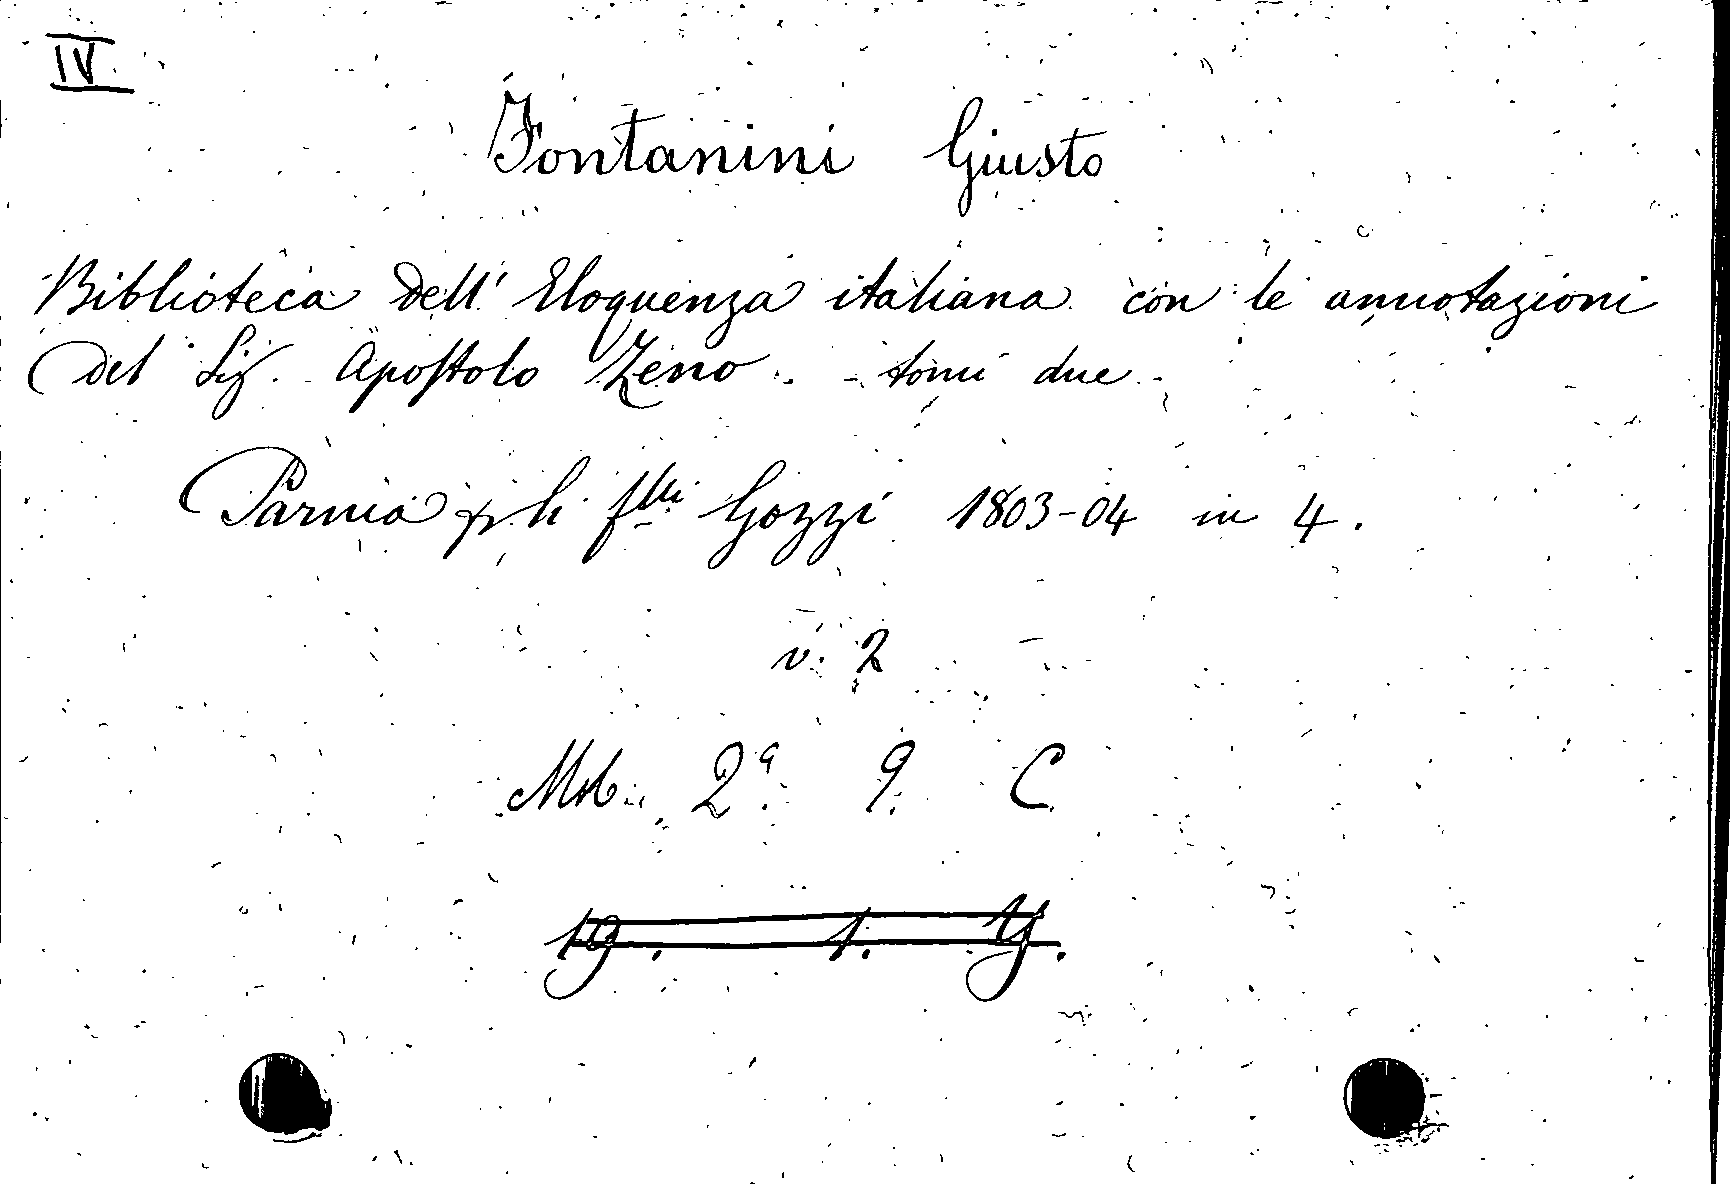 IV
Fontanini Giusto
Biblioteca dell' Eloquenza italiana con le annotazioni
del Sig. Apostolo Zeno tomi due
Parma p. li flli Gozzi 1803-04 in 4.
v. 2
2a. 9. C
19. 1. Y.